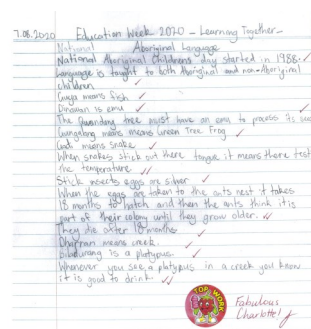 7.08.2020 Education Week 2020 - Learning Together -
National Aboriginal Language
National Aboriginal Childrens day started in 1988.
Language is taught to both Aboriginal and non-Aboriginal
children
Guya means fish
Dinawan is emu
The Quandong tree must have an emu to process its
means Green Tree Frog
means snake
When snakes stick out there tongue it means there test
the temperature
Stick insects eggs are silver
When the eggs are taken to the ants nest it takes
18 months to hatch and then the ants think it is
part of their colony until they grow older.
They die after 18 months
means creek.
is a platypus
Whenever you see a platypus in a creek you know
it is good to drink
TOP WORK
Fabulous
Charlotte!